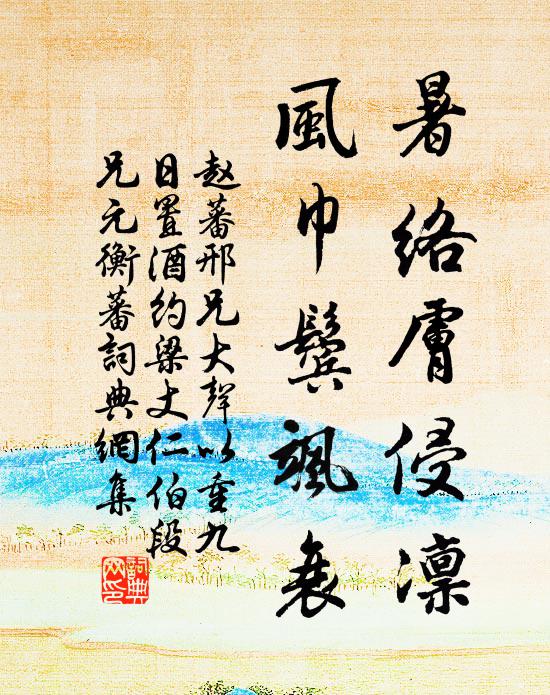 暑絡膚侵凛
風巾鬓颯衰
赵蕃邢兄大聲以重九
日置酒约梁丈仁伯段
兄元衡蕃詞典網集
詞典
网印